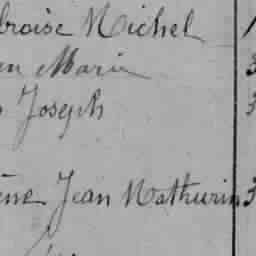 broise Michel
en Marie
Joseph
ène Jean Mathurin 3